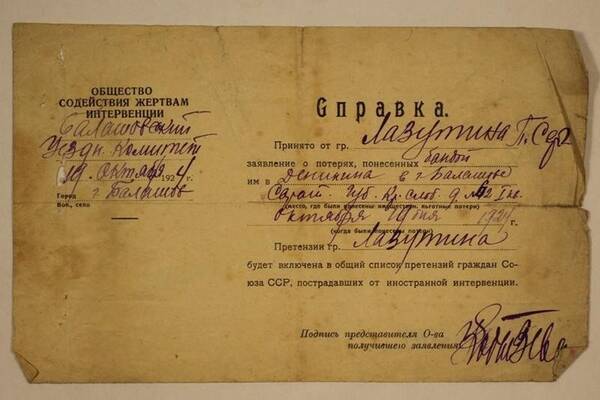 ОБЩЕСТВО
СОДЕЙСТВИЯ ЖЕРТВАМ
ИНТЕРВЕНЦИИ
Балашовский
Уездн. Комитет
19 октября 1924
Город г. Балашов
Вол., село
Справка.
Принято от гр. Лазутина П. Сер
заявление о потерях, понесенных бандой
им в Деникина в г. Балашове
Сарат. Губ. Кр. слоб.
октября 19 дня 1924 г.
(когда были понесены потери)
Претензии гр. Лазутина
будет включена в общий список претензий граждан Со-
юза ССР, пострадавших от иностранной интервенции.
Подпись представителя О-ва
получившего заявления